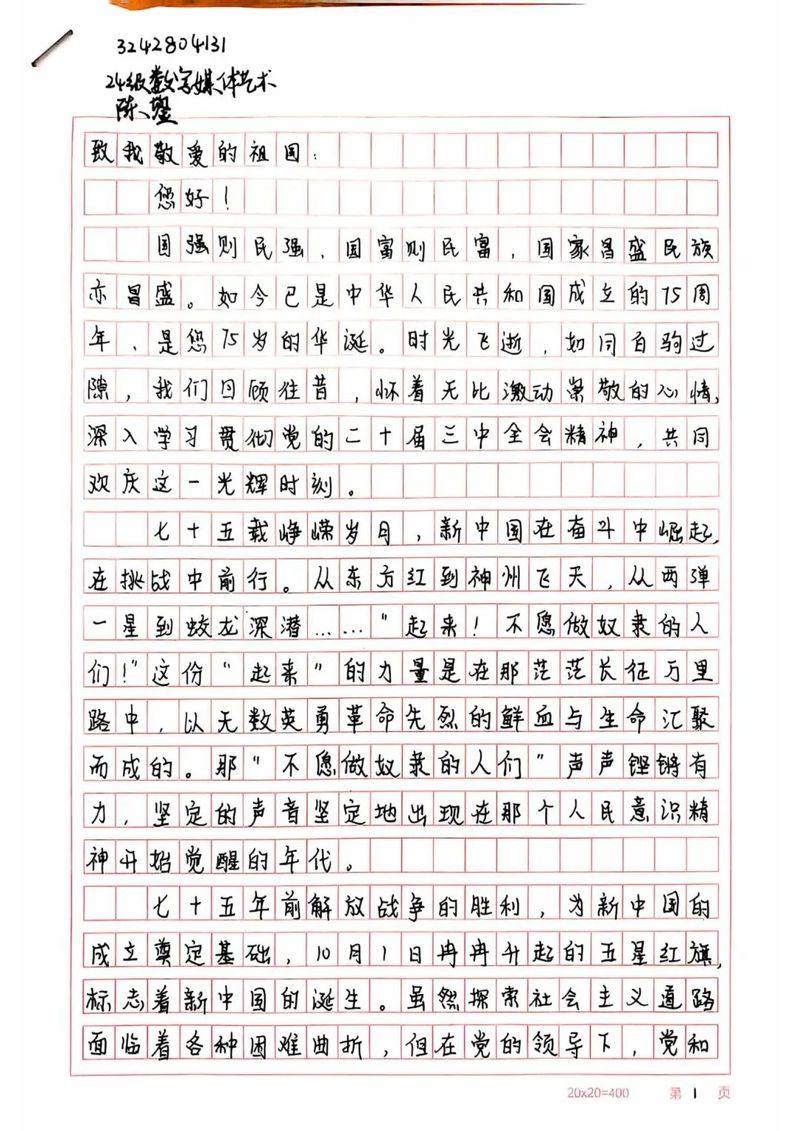 3242804131
24级数字媒体艺术
陈
致我敬爱的祖国：
您好！
国强则民强，国富则民富，国家昌盛民族
亦昌盛。如今已是中华人民共和国成立的75周
年、是您75岁的华诞。时光飞逝，如同白驹过
隙，我们回顾往昔，怀着无比激动崇敬的心情，
深入学习贯彻党的二十届三中全会精神，共同
欢庆这一光辉时刻。
七十五载峥嵘岁月，新中国在奋斗中崛起，
在挑战中前行。从东方红到神州飞天，从两弹
一星到蛟龙深潜……"起来！不愿做奴隶的人
们！"这份"起来"的力量是在那茫茫长征万里
路中，以无数英勇革命先烈的鲜血与生命汇聚
而成的。那"不愿做奴隶的人们"声声铿锵有
力，坚定的声音坚定地出现在那个人民意识精
神开始觉醒的年代。
七十五年前解放战争的胜利，为新中国的
成立奠定基础，10月1日冉冉升起的五星红旗，
标志着新中国的诞生。虽然探索社会主义道路
面临着各种困难曲折，但在党的领导下，党和
20x20=400 第 1 页